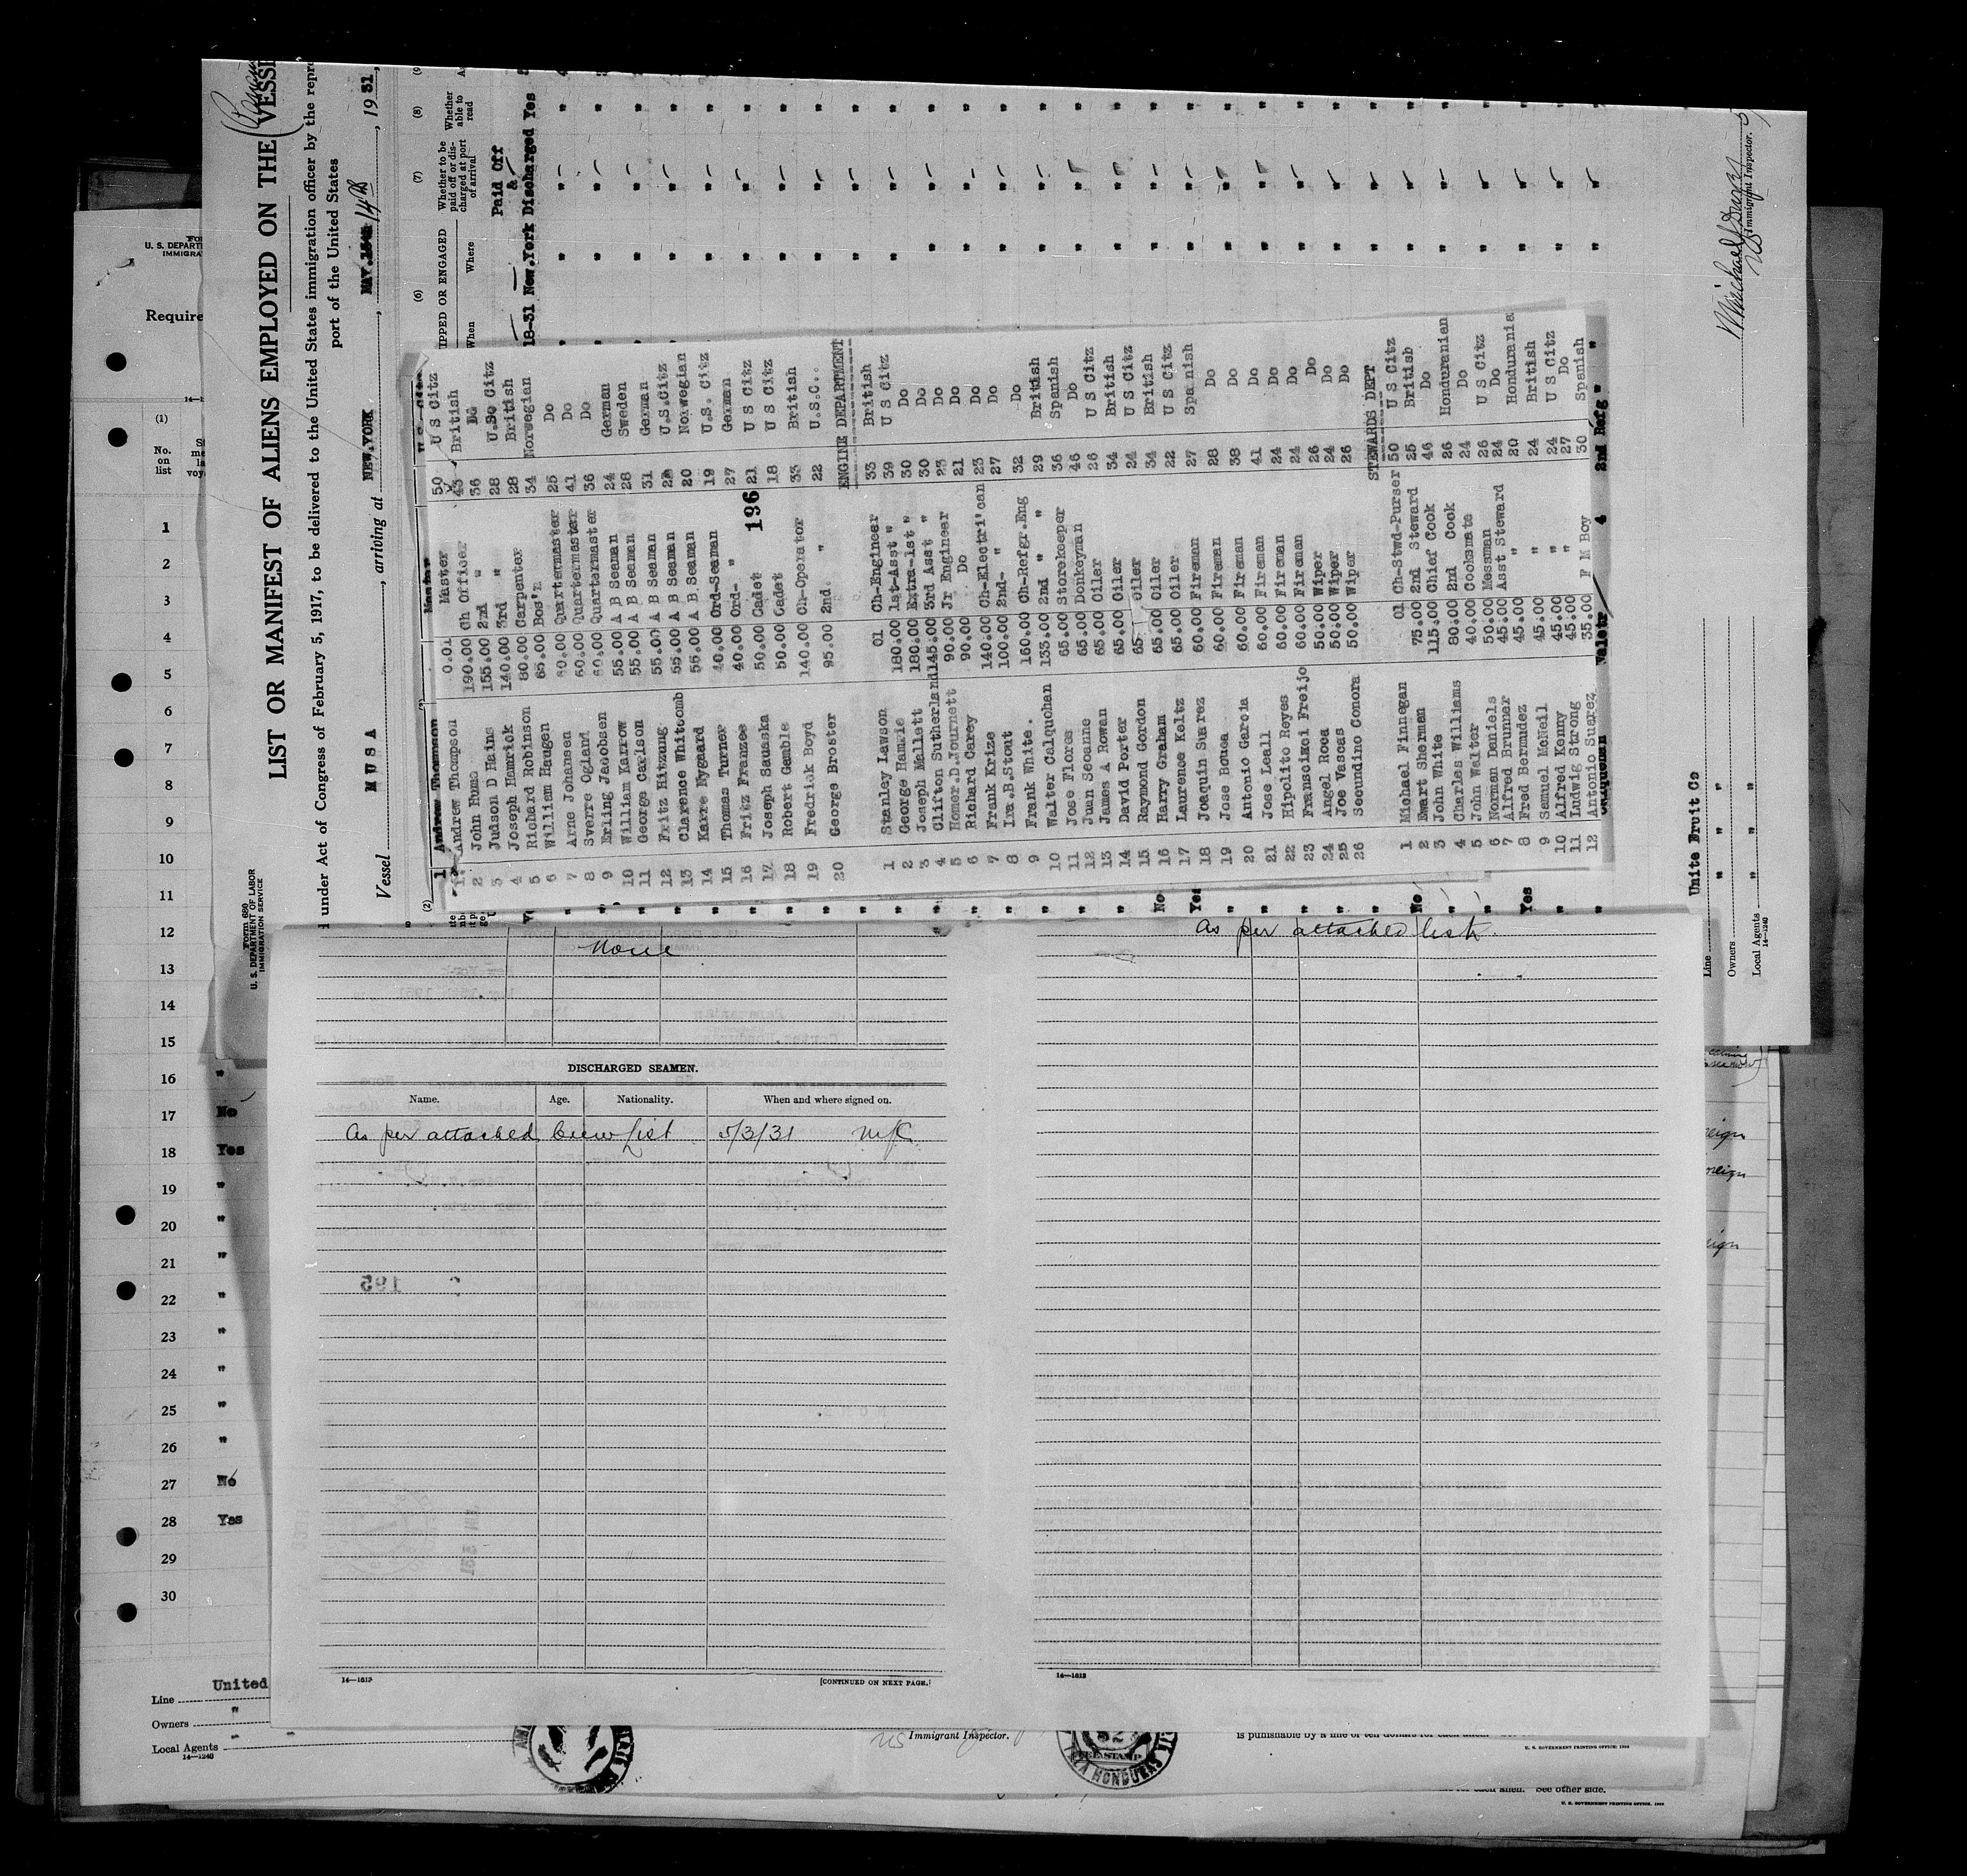 LIST OR MANIFEST OF ALIENS EMPLOYED ON THE VESSE
under Act of Congress of February 5, 1917, to be delivered to the United States immigration officer by the repre
port of the United States
Vessel MUSA, arriving at NEW.YORK, 14th, 1931,
(6) (7) (8) (9
IPPED OR ENGAGED
When Where
Whether to be paid off or discharged at port of arrival
Whether able to read
Paid Off
&
18-31 New.York Discharged Yes
Form 680
U. S. DEPARTMENT OF LABOR
IMMIGRATION SERVICE
1 Andrew Thompson Master
1 Andrew Thompson 0.01 Master 50 U S Citz
2 John Hume 190.00 Ch Officer 43 British
3 Judson D Hains 155.00 2nd " 36 Do
4 Joseph Hamrick 140.00 3rd " 28 U.S. Citz
5 Richard Robinson 80.00 Carpenter 28 British
6 William Haugen 65.00 Bos'n 34 Norwegian
7 Arne Johansen 60.00 Quartermaster 25 Do
8 Sverre Ogland 60.00 Quartermaster 41 Do
9 Erling Jacobsen 60.00 Quartermaster 36 Do
10 William Karrow 55.00 A B Seaman 24 German
11 George Carlson 55.00 A B Seaman 28 Sweden
12 Fritz Hitzung 55.00 A B Seaman 31 German
13 Clarence Whitcomb 55.00 A B Seaman U.S.Citz
14 Karre Nygaard 55.00 A B Seaman 20 Norwegian
15 Thomas Turner 40.00 Ord-Seaman 19 U.S. Citz
16 Fritz Franzee 40.00 Ord- " 27 German
17 Joseph Sauska 50.00 Cadet 21 U S Citz
196
18 Robert Gamble 50.00 Cadet 18 U S Citz
19 Fredrick Boyd 140.00 Ch-Operator 33 British
20 George Broster 95.00 2nd. " 22 U.S.C..
ENGINE DEPARTMENT
1 Stanley Lawson 01 Ch-Engineer 33 British
2 George Hamrie 180.00 1st-Asst " 39 U S Citz
3 Joseph Mallett 180.00 Extra-1st " 30 Do
4 Clifton Sutherland 145.00 3rd Asst " 30 Do
5 Homer.D.Journett 90.00 Jr Engineer 23 Do
6 Richard Carey 90.00 Do 21 Do
7 Frank Krize 140.00 Ch-Electri'can 23 Do
8 Ira.B.Stout 100.00 2nd- " 27 Do
9 Frank White. 160.00 Ch-Refgr.Eng 32 Do
10 Walter Calquohan 133.00 2nd " " 29 British
11 Jose Flores 65.00 Storekeeper 36 Spanish
12 Juan Seoanne 65.00 Donkeyman 46 Do
13 James A Rowan 65.00 Oiler 26 U S Citz
14 David Porter 65.00 Oiler 34 British
15 Raymond Gordon 65 Oiler 24 U S Citz
16 Harry Graham 65.00 Oiler 34 British
17 Laurence Keltz 65.00 Oiler 22 U S Citz
18 Joaquin Suarez 60.00 Fireman 27 Spanish
19 Jose Bouca 60.00 Fireman 28 Do
20 Antonio Garcia 60.00 Fireman 38 Do
21 Jose Leall 60.00 Fireman 41 Do
22 Hipolito Reyes 60.00 Fireman 24 Do
23 Fransicsi Freijo 60.00 Fireman 24 Do
24 Angel Rocca 50.00 Wiper 26 Do
25 Joe Vascas 50.00 Wiper 24 Do
26 Secundino Conora 50.00 Wiper 26 Do
STEWARDS DEPT
1 Michael Finnegan 01 Ch-Stwd-Purser 50 U S Citz
2 Ewart Sherman 75.00 2nd Steward 25 British
3 John White 115.00 Chief Cook 46 Do
4 Charles Williams 80.00 2nd Cook 26 Honduranian
5 John Walter 40.00 Cooksmate 24 Do
6 Norman Daniels 50.00 Messman 26 U S Citz
7 Alfred Brunner 45.00 Asst Steward 24 Do
8 Fred Bermudez 45.00 " " 20 Hondurania
9 Samuel McNeil 45.00 " 24 British
10 Alfred Kenny 45.00 " 24 U S Citz
11 Ludwig Strong 45.00 " 27 Do
12 Antonio Suarez 35.00 F M Boy 30 Spanish
4 2nd Refg "
Immigrant Inspector.
Line Unite Fruit Co
Owners " " "
Local Agents " " "
14-1240
U. S. DEPART
IMMIGRA
Require
(1)
No. on list
1
2
3
4
5
6
7
8
9
10
11
12
13
14
15
16 "
17 No
18 Yes
19 "
20 "
21 "
22 "
23 "
24 "
25 "
26 "
27 No
28 Yes
29
30
None
As per attached list.
DISCHARGED SEAMEN.
Name. Age. Nationality. When and where signed on.
As per attached Crew list 5/3/31 NYC.
195
14—1613 [CONTINUED ON NEXT PAGE.]
14—1613
Line United
Owners "
Local Agents "
14—1240
US Immigrant Inspector.
FEE STAMP
LA HONDURAS
is punishable by a fine of ten dollars for each alien.
U. S. GOVERNMENT PRINTING OFFICE
for each alien. See other side.
U. S. GOVERNMENT PRINTING OFFICE